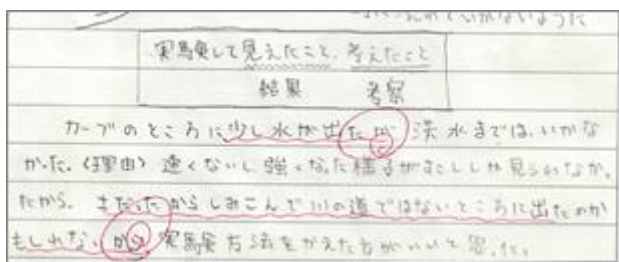 いかないように
実験して見えたこと、考えたこと
結果 考察
カーブのところに少し水が出たが 洪水までは、いかな
かった。(理由) 速くないし強くなった様子がすこししか見られなかっ
たから。 まだ たからしみこんで川の道ではないところに出たのか
もしれないから 実験方法をかえた方がいいと思った。